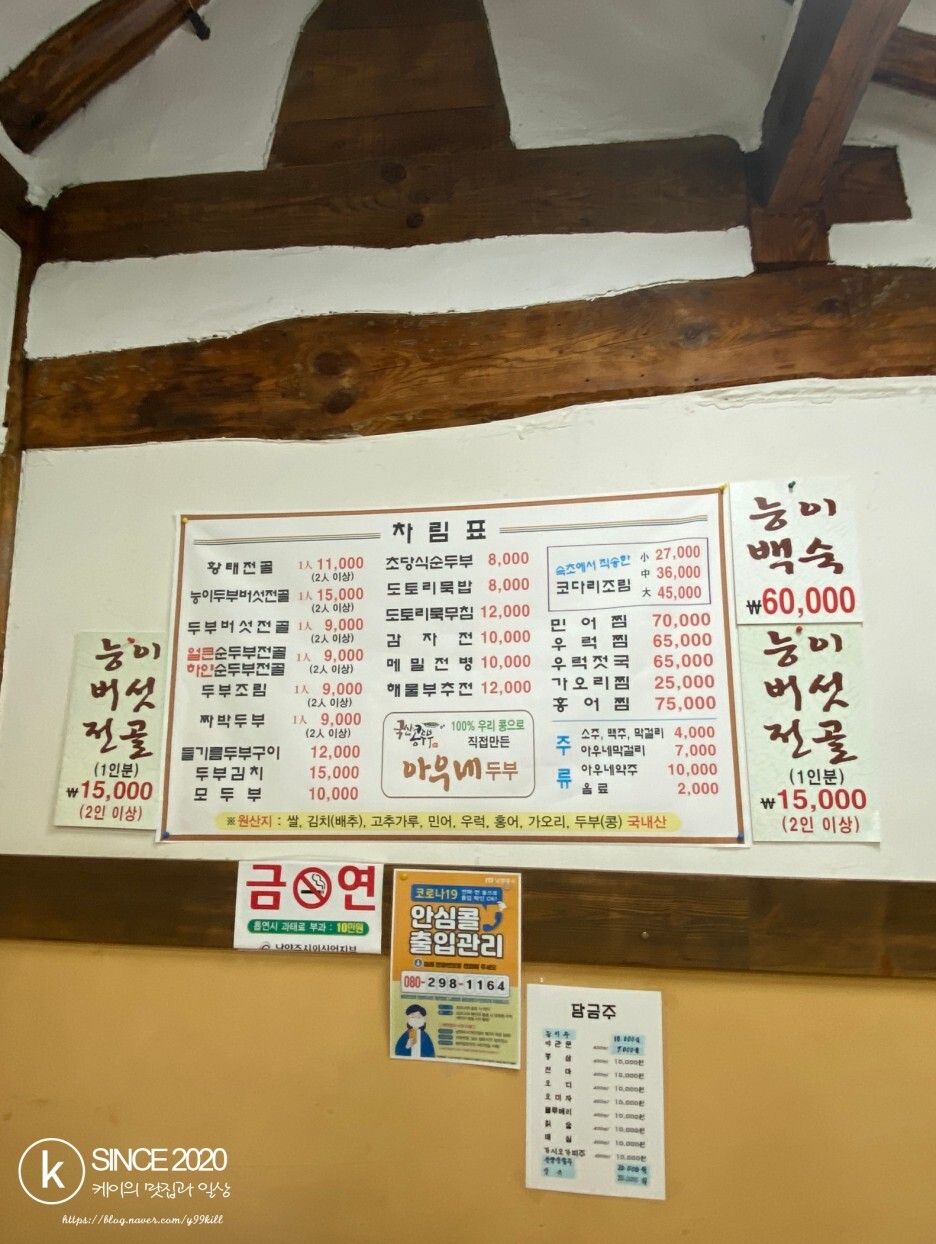 차림표
황태전골 1人 11,000
(2人 이상)
능이두부버섯전골 1人 15,000
(2人 이상)
두부버섯전골 1人 9,000
(2人 이상)
얼큰순두부전골
하얀순두부전골 1人 9,000
(2人 이상)
두부조림 1人 9,000
(2人 이상)
짜박두부 1人 9,000
(2人 이상)
들기름두부구이 12,000
두부김치 15,000
모두부 10,000
초당식순두부 8,000
도토리묵밥 8,000
도토리묵무침 12,000
감자전 10,000
메밀전병 10,000
해물부추전 12,000
100% 우리 콩으로
직접만든
아우네두부
속초에서 직송한
코다리조림
小 27,000
中 36,000
大 45,000
민어찜 70,000
우럭찜 65,000
우럭젓국 65,000
가오리찜 25,000
홍어찜 75,000
주류
소주, 맥주, 막걸리 4,000
아우네막걸리 7,000
아우네약주 10,000
음료 2,000
※원산지 : 쌀, 김치(배추), 고추가루, 민어, 우럭, 홍어, 가오리, 두부(콩) 국내산
능이
버섯
전골
(1인분)
₩15,000
(2인 이상)
능이
백숙
₩60,000
능이
버섯
전골
(1인분)
₩15,000
(2인 이상)
금연
흡연시 과태료 부과 : 10만원
남양주시외식업지부
코로나19
안심콜
출입관리
080-298-1164
담금주
더덕
오디
오미자
블루베리
칡술
매실
가시오가피주
k
SINCE 2020
케이의 맛집과 일상
https://blog.naver.com/y99kill